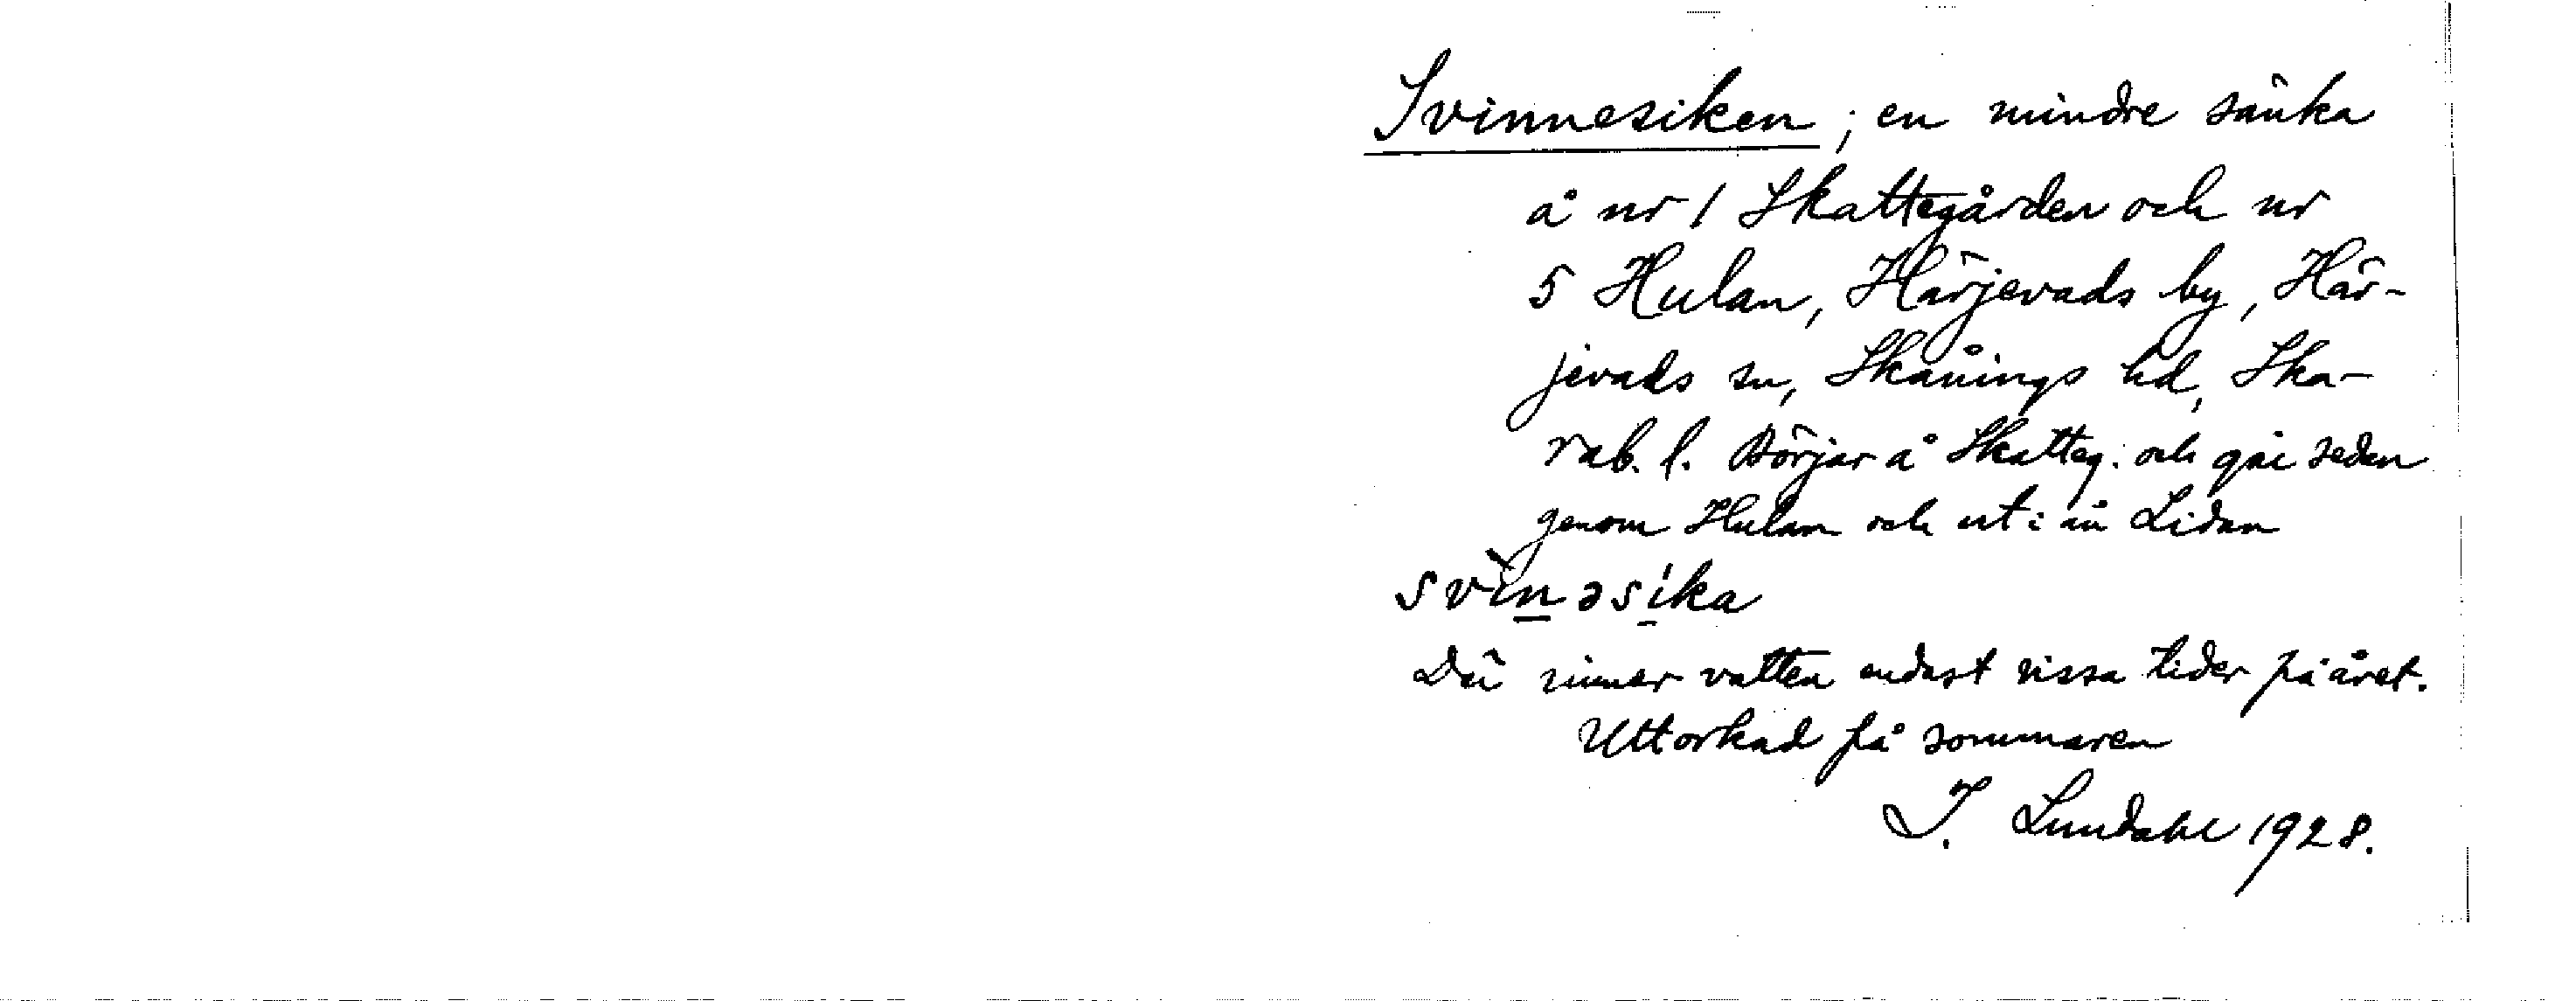 Svinnesiken; en mindre sänka
å nr 1 Skattegården och nr
5 Hulan, Härjevads by, Här-
jevads sn, Skånings hd, Ska-
rab. l. Börjar å Skatteg. och går sedan
genom Hulan och ut i ån Lidan
svìnəsíka
Där rinner vatten endast vissa tider på året.
Uttorkad på sommaren
I. Lundahl 1928.